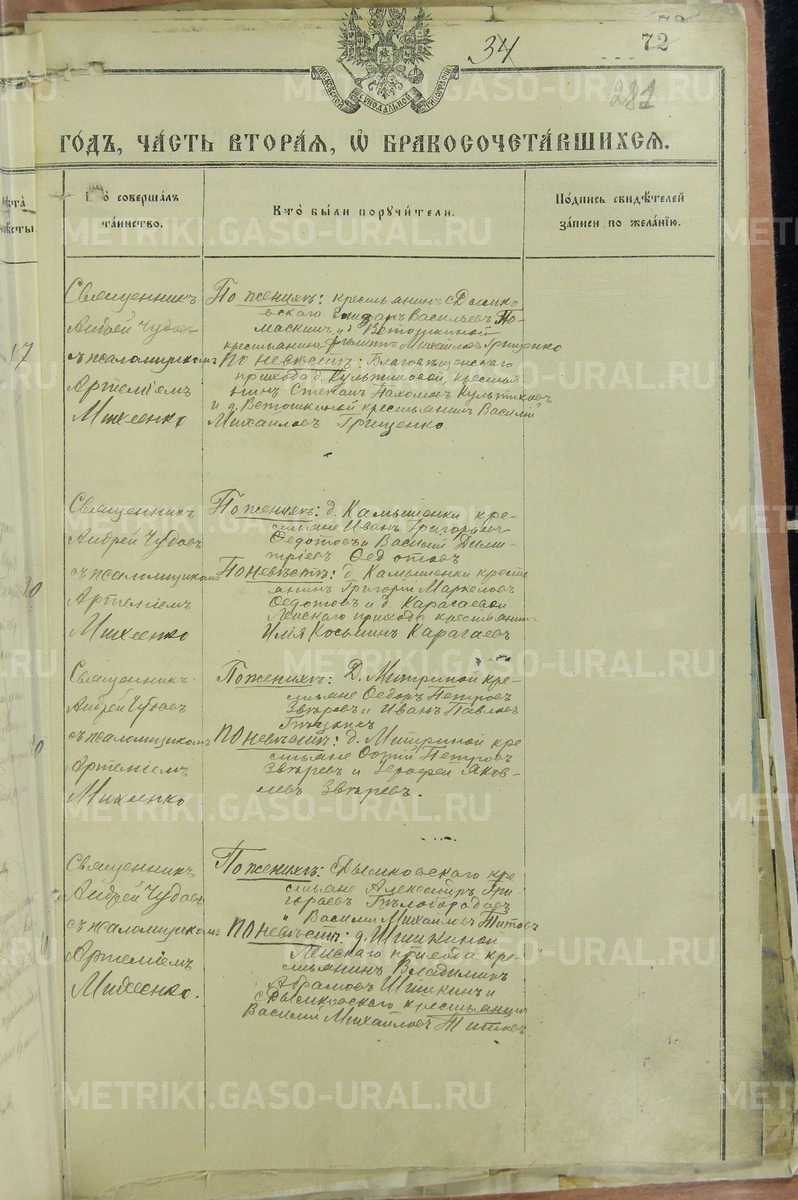 34
72
281
МОСКОВСКОЙ СѴНОДАЛЬНОЙ ТИПОГРАФІИ
ГО́ДЪ, ЧА́СТЬ ВТОРА́Я, Ѡ БРАКОСОЧЕТА́ВШИХСЯ.
совершалъ
та́инство.
Кто̀ бы́ли порꙋчи́тели.
По́дпись свидѣ́телей
за́писи по жела́нїю.
Священникъ
Андрей Чудовъ
съ псаломщикомъ
Артеміемъ
Михеенко
По женихѣ: крестьянинъ с. Дымко
вскаго Васильевъ По
маскинъ и д. Ветошкиной
крестьянинъ Филиппъ Михайловъ Грищенко
По невѣстѣ: Благовѣщенскаго
прихода д. Культиковой, крестья
нинъ Степанъ Нахомовъ Культиковъ
и д. Ветошкиной крестьянинъ Василій
Михаиловъ Грищенко.
17
Священникъ
Андрей Чудовъ
съ псаломщикомъ
Артеміемъ
Михеенко
По женихѣ: д. Камышенки кре-
стьяне Иванъ Григорьевъ
Федотовъ и Василій Дими-
тріевъ Федотовъ
По невѣстѣ: д. Камышенки крест
янинъ Григорій Маркеловъ
Федотовъ и д. Карагаевой
Лейскаго прихода крестьянинъ
Илія Косьминъ Карагаевъ
Священникъ
Андрей Чудовъ
съ псаломщикомъ
Артеміемъ
Михеенко
По женихѣ: Д. Митриной кре-
стьяне Федоръ Петровъ
Звѣревъ и Иванъ Павловъ
По невѣстѣ: д. Митриной кре
стьяне Фотій Петровъ
Звѣревъ и Іерофей Яков-
левъ Звѣревъ.
Священникъ
Андрей Чудовъ
съ псаломщикомъ
Артеміемъ
Михеенко.
По женихѣ: с. Дымковскаго кре
стьяне Александръ Гри-
горьевъ Бѣлобородовъ
и Василій Михайловъ Титовъ
По невѣстѣ: д. Шишкиной
Лейскаго прихода кре-
стьянинъ Владиміръ
Абрамовъ Шишкинъ и
с. Дымковскаго крестьянинъ
Василій Михайловъ Титовъ
METRIKI.GASO-URAL.RU